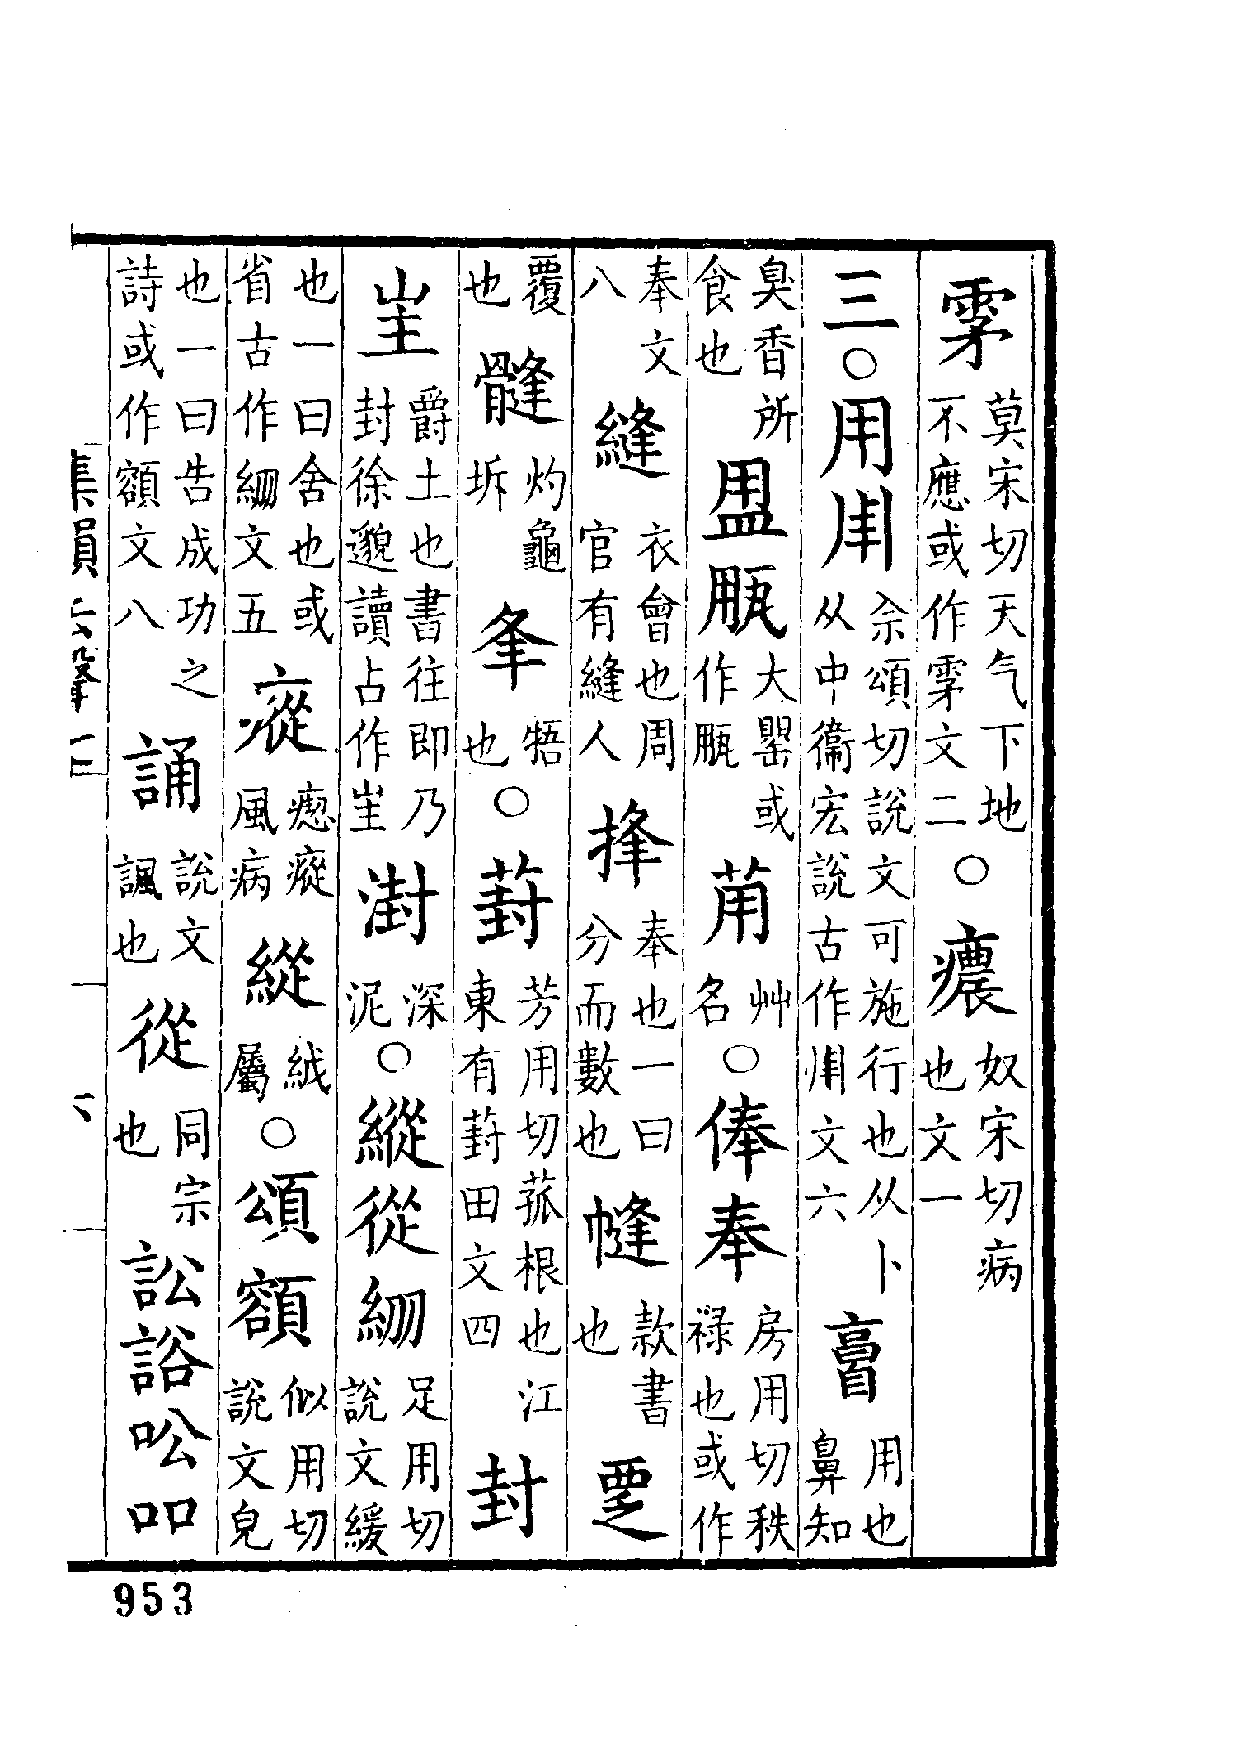 雺莫宋切天气下地不應或作雺文二○癑奴宋切病也文一
三○用𤰃余頌切說文可施行也从卜从中衞宏說古作𤰃文六𦤘用也鼻知
臭香所食也㽯㼶大甖或作㼶苚艸名○俸奉房用切秩祿也或作
奉文八縫衣會也周官有縫人捀奉也一曰分而數也㡝款書也覂
覆也髼灼龜坼夆牾也○葑芳用切菰根也江東有葑田文四封
爵土也書往即乃封徐邈讀占作㞷㞷澍深泥○縱從䌷足用切說文緩
也一曰舍也或省古作䌷文五瘲瘛瘲風病縱絨屬○頌額似用切說文皃
也一曰告成功之詩或作額文八誦說文諷也從同宗也訟𧧗吅
集韻去聲上
六
953